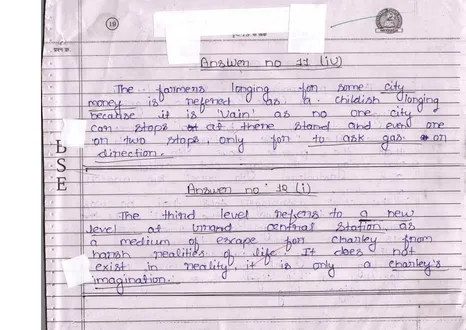 19
Answer no 11 (iv)
The farmers longing for some city
money is referred as a childish longing
because it is 'Vain' as no one city
can stops at there stand and even one
on two stops only for to ask gas or
direction.
BSE
Answer no: 12 (i)
The third level refers to a new
level at Grand central station as
a medium of escape for charley from
harsh realities of life. It does not
exist in reality it is only a charley's
imagination.